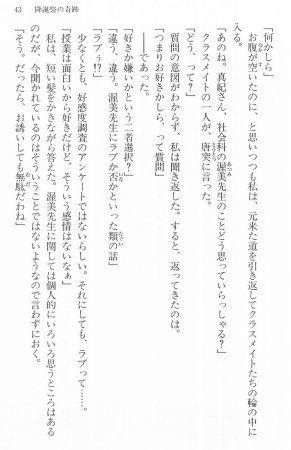 43　降誕祭の奇跡
「何かしら」
お腹が空いたのに、と思いつつも私は、元来た道を引き返してクラスメイトたちの輪の中に
入る。
「あのね。真紀さん、社会科の渥美先生のことどう思っていらっしゃる？」
クラスメイトの一人が、唐突に言った。
「どう、って？」
質問の意図がわからず、私は聞き返した。すると、返ってきたのは。
「つまりお好きかしら、って質問」
――であった。
「好きか嫌いかという二者選択？」
「違う、違う。渥美先生にラブか否かといった類の話」
「ラブぅ!?」
少なくとも、好感度調査のアンケートではないらしい。それにしても、ラブって……。
「授業は面白いから好きだけど、そういう感情はないなぁ」
私は、短い髪をかきながら答えた。渥美先生に関しては個人的にいろいろ思うところはある
のだが、今聞かれているのはそういうことではないようなので言わずにおく。
「そう。だったら、お誘いしても無駄だわね」